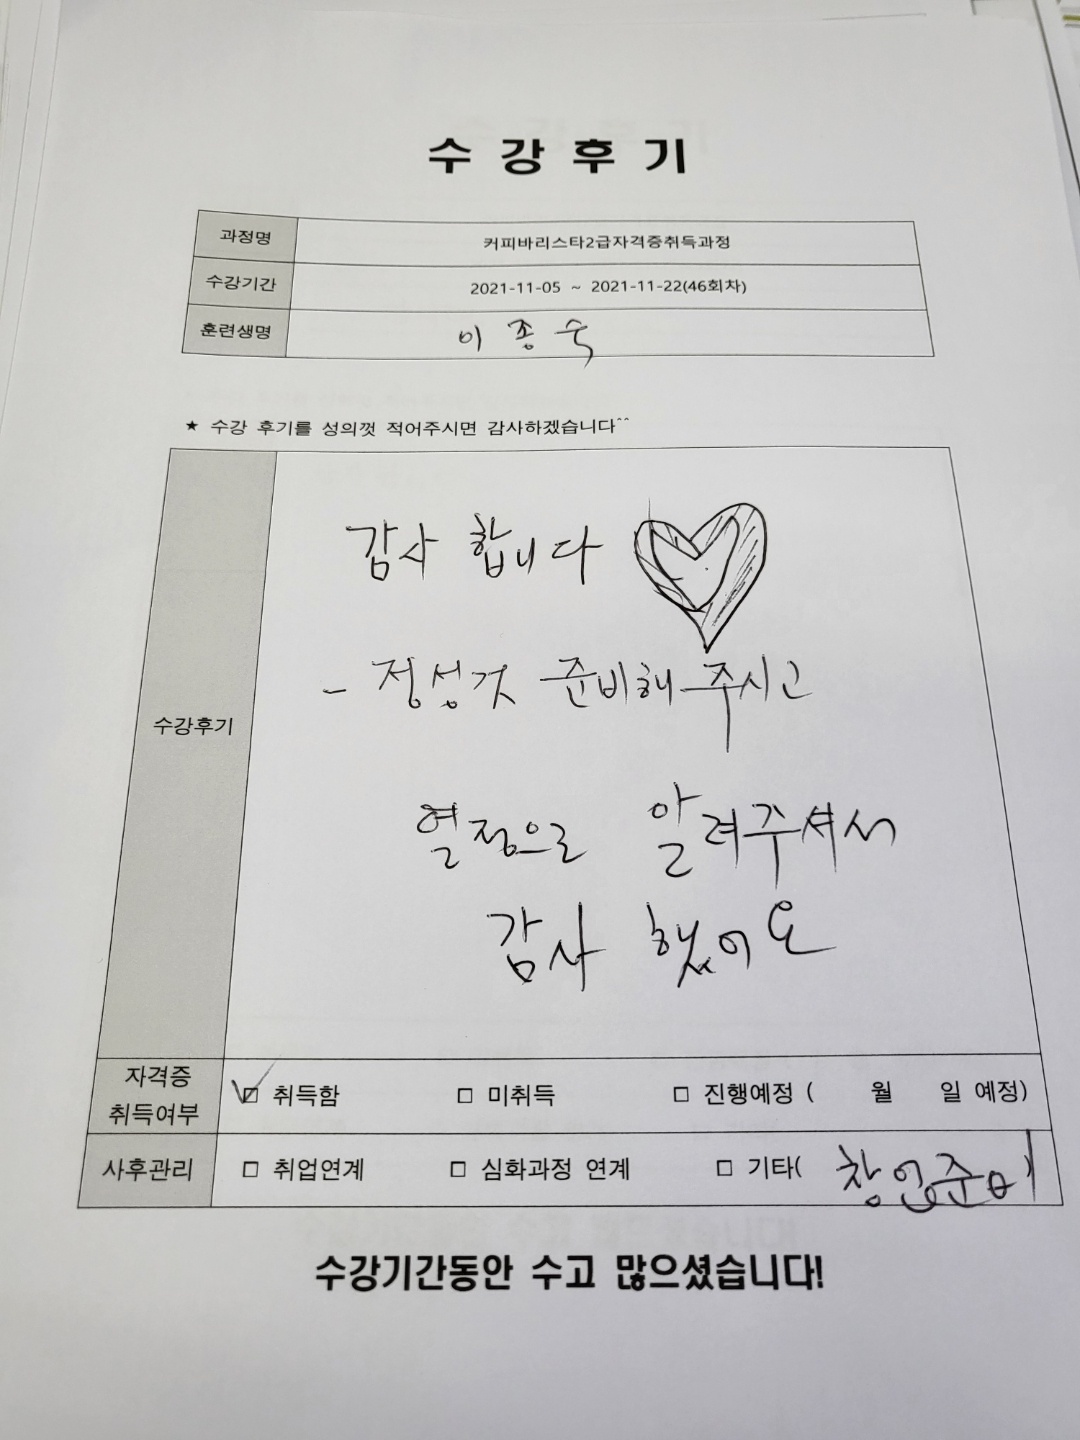 수 강 후 기
과정명 커피바리스타2급자격증취득과정
수강기간 2021-11-05 ~ 2021-11-22(46회차)
훈련생명 이종숙
★ 수강 후기를 성의껏 적어주시면 감사하겠습니다^^
수강후기
감사 합니다
- 정성것 준비해주시고
열정으로 알려주셔서
감사 했어요
자격증
취득여부
☑ 취득함 □ 미취득 □ 진행예정 ( 월 일 예정)
사후관리 □ 취업연계 □ 심화과정 연계 □ 기타( 창업준비
수강기간동안 수고 많으셨습니다!